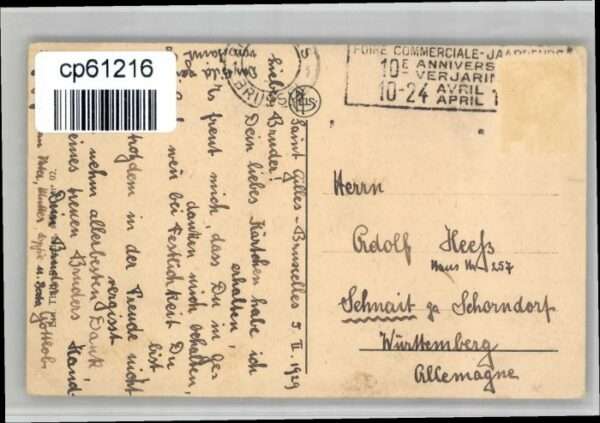 cp61216
FOIRE COMMERCIALE-JAARBEURS
10E ANNIVERS
VERJARIN
10-24 AVRIL
APRIL 1
BRUSS
Saint Gilles-Bruxelles 5. II. 1929
Lieber Bruder!
Dein liebes Kärtchen habe ich
erhalten,
's freut mich, dass Du in ge-
danken mich behalten,
wen bei Festlichkeit Du
bist
trotzdem in der Freude nicht
vergisst.
nehm allerbesten Dank
eines treuen Bruders Hand.
Dein Bruder
Gottlob.
Herrn
Adolf Heeß
Haus Nr 257
Schnait ga Schorndorf
Württemberg
Allemagne